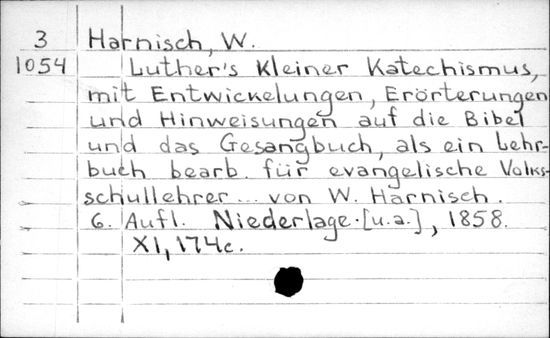 3 Harnisch, W.
1054 Luther's Kleiner Katechismus,
mit Entwickelungen, Erörterungen
und Hinweisungen auf die Bibel
und das Gesangbuch, als ein Lehr-
buch bearb. für evangelische Volks-
schullehrer... von W. Harnisch.
6. Aufl. Niederlage. [u.a.], 1858.
XI, 174c.